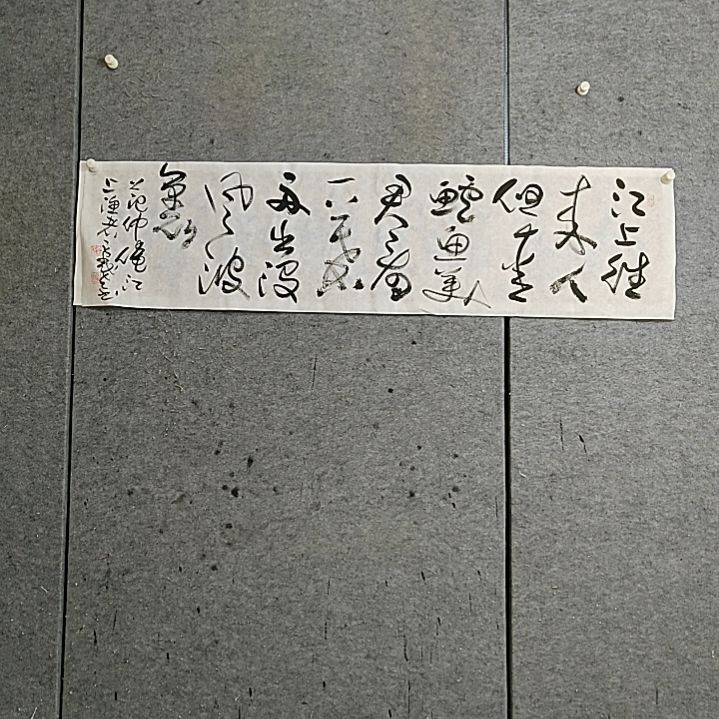 江上往
来人
但爱
鲈鱼美
君看
一叶
舟出没
风波
里
范仲淹江
上渔者